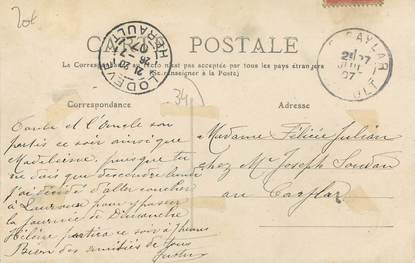 20€
CARTE POSTALE
La Correspondance au recto n'est pas acceptée par tous les pays étrangers
(Se renseigner à la Poste.)
LODEVE
HERAULT
CAYLAR
Correspondance
Adresse
Tante et l'oncle son
partis ce soir ainsi que
Madeleine. puisque tu
ne dois que descendre lundi
j'ai décidé d'aller coucher
à Lauroux pour y passer
la journée de Dimanche
Hélène partira ce soir à
Bien des amitiés de tous
Madame Félicie Julian
chez Mr Joseph
au Caylar